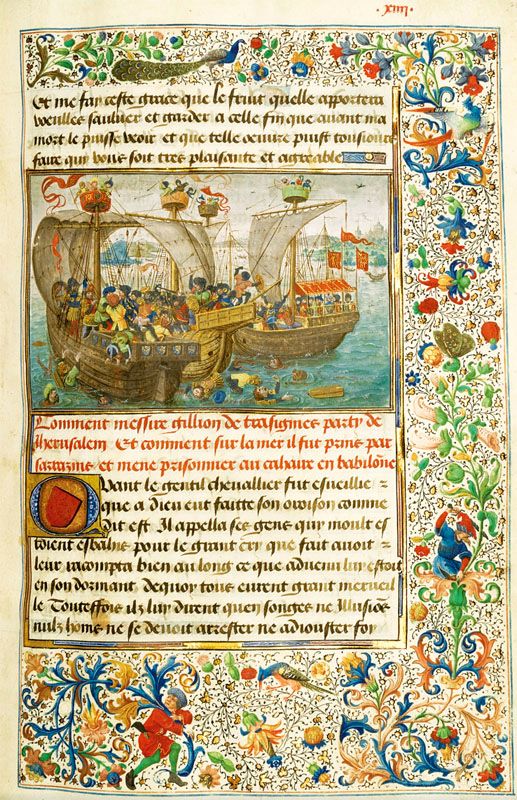 ·xiiii·
Et me fay ceste grace que le fruit quelle apportera
vueilles saulver et garder a celle fin que avant ma
mort le puisse veoir et que telle oeuvre puist tousiours
faire qui vous soit tres plaisante et agreable
Comment messire gillion de trasignies party de
Jherusalem Et comment sur la mer il fut prins par
sarrazins et mene prisonnier au cahaire en babilone
Quant le gentil chevallier fut esveillie z
que a dieu eut faitte son oroison comme
dit est Il appella ses gens quy moult es
toient esbahis pour le grant cry que fait avoit z
leur racompta bien au long ce que advenu luy estoit
en son dormant dequoy tous eurent grant merveil
le Touteffois ilz luy dirent quen songes ne Illusions
nulz homs ne se devoit arrester ne adiouster foy